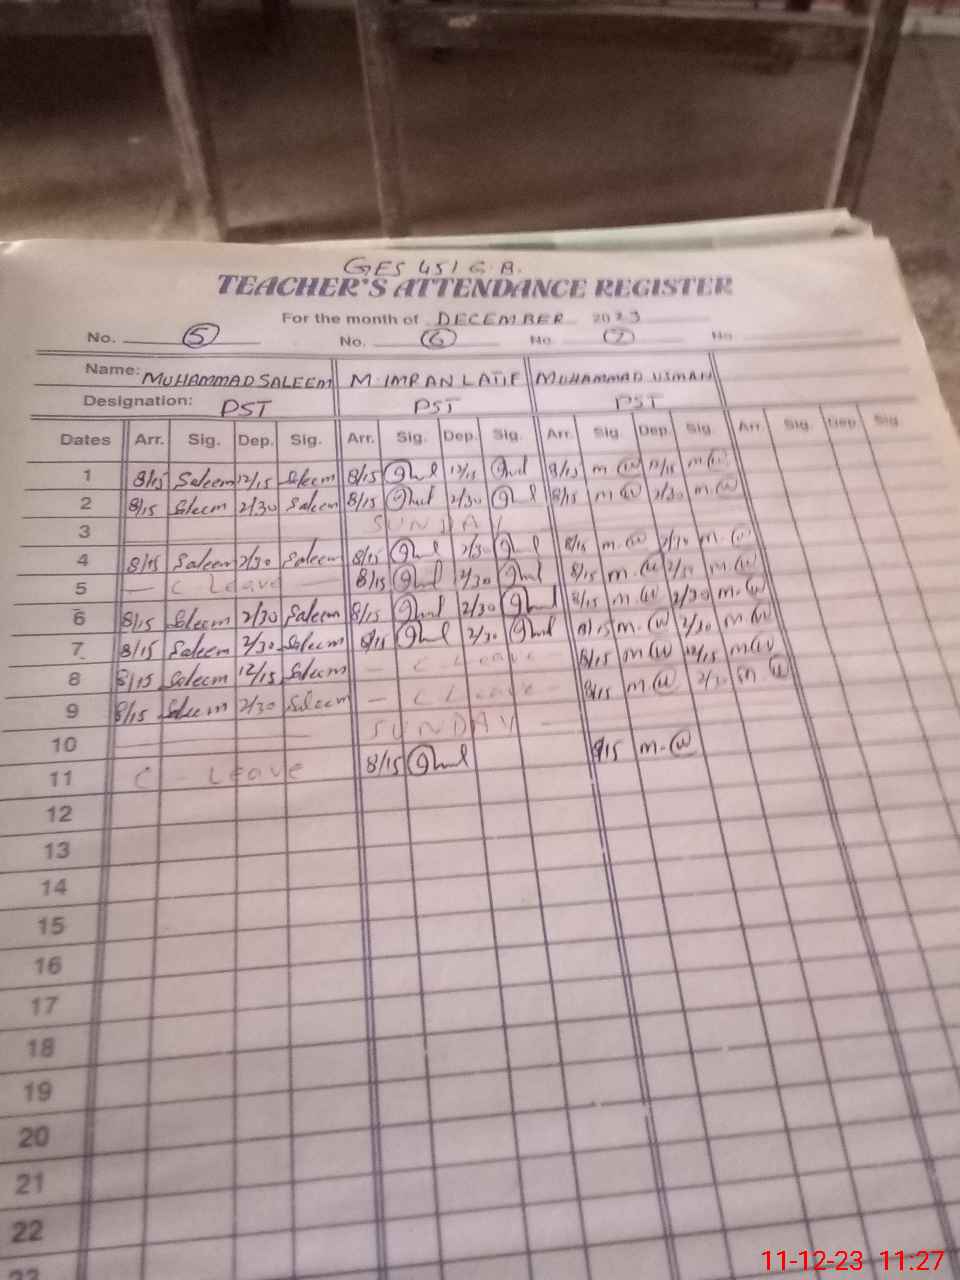 GES 451 G.B.
TEACHER'S ATTENDANCE REGISTER
For the month of DECEMBER 2023
No. 5 No. 6 No 7 No
Name: MUHAMMAD SALEEM M. IMRAN LATIF MUHAMMAD USMAN
Designation: PST PST PST
Dates Arr. Sig. Dep. Sig. Arr. Sig. Dep. Sig. Arr. Sig. Dep. Sig. Arr. Sig. Dep. Sig
1 8/15 Saleem 12/15 Saleem 8/15 12/15 8/15 12/15
2 8/15 Saleem 2/30 Saleem 8/15 2/30 8/15 2/30
3 SUNDAY
4 8/15 Saleem 2/30 Saleem 8/15 2/30 8/15 2/30
5 — C Leave — 8/15 2/30 8/15 2/30
6 8/15 Saleem 2/30 Saleem 8/15 2/30 8/15 2/30
7 8/15 Saleem 2/30 Saleem 8/15 2/30 8/15 2/30
8 8/15 Saleem 12/15 Saleem — C Leave — 8/15 12/15
9 8/15 Saleem 2/30 Saleem — C Leave — 8/15 2/30
10 SUNDAY
11 C - Leave 8/15 8/15
12
13
14
15
16
17
18
19
20
21
22
23
11-12-23 11:27